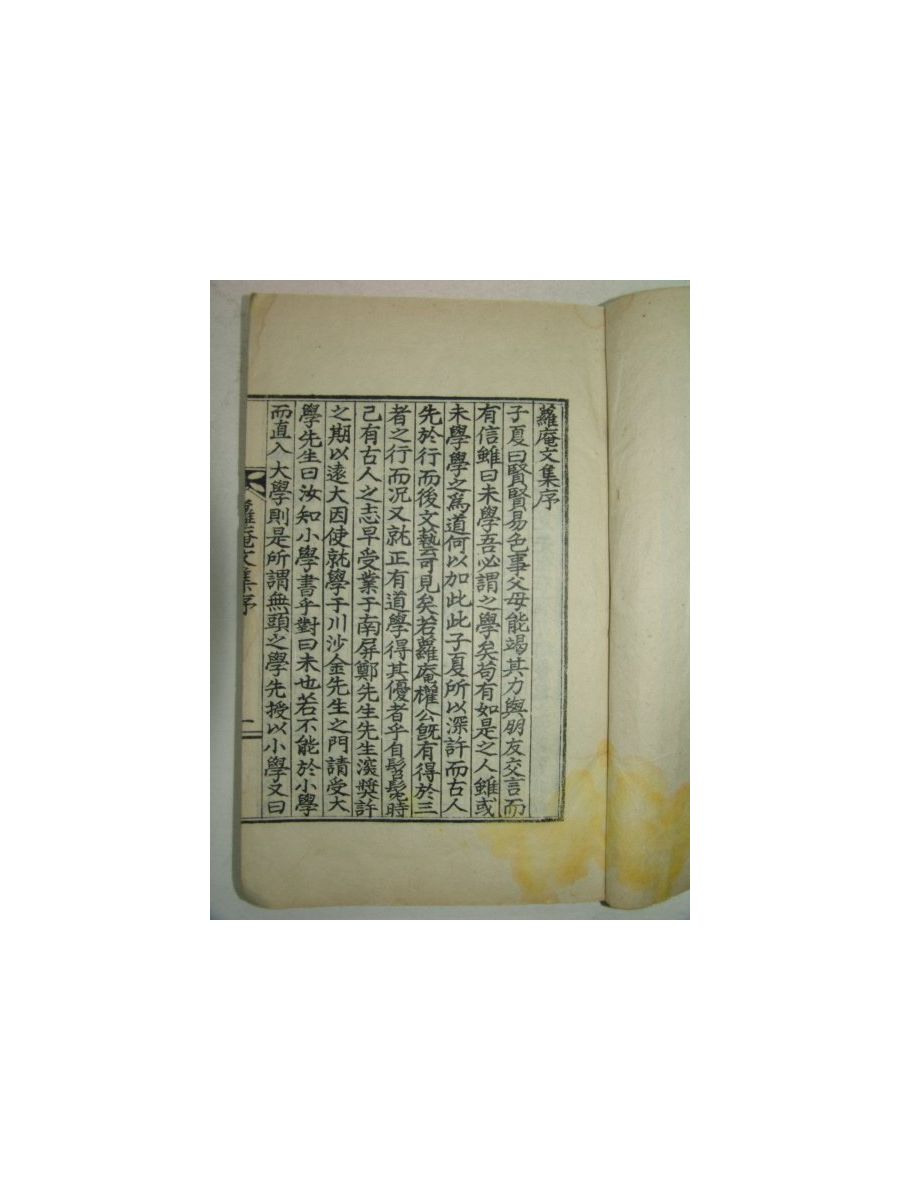 蘿庵文集序
子夏曰賢賢易色事父母能竭其力與朋友交言而
有信雖曰未學吾必謂之學矣苟有如是之人雖或
未學學之爲道何以加此此子夏所以深許而古人
先於行而後文藝可見矣若蘿庵權公旣有得於三
者之行而况又就正有道學得其優者乎自髫髦時
己有古人之志早受業于南屏鄭先生先生深奬許
之期以遠大因使就學于川沙金先生之門請受大
學先生曰汝知小學書乎對曰未也若不能於小學
而直入大學則是所謂無頭之學先授以小學又曰
蘿庵文集序
一